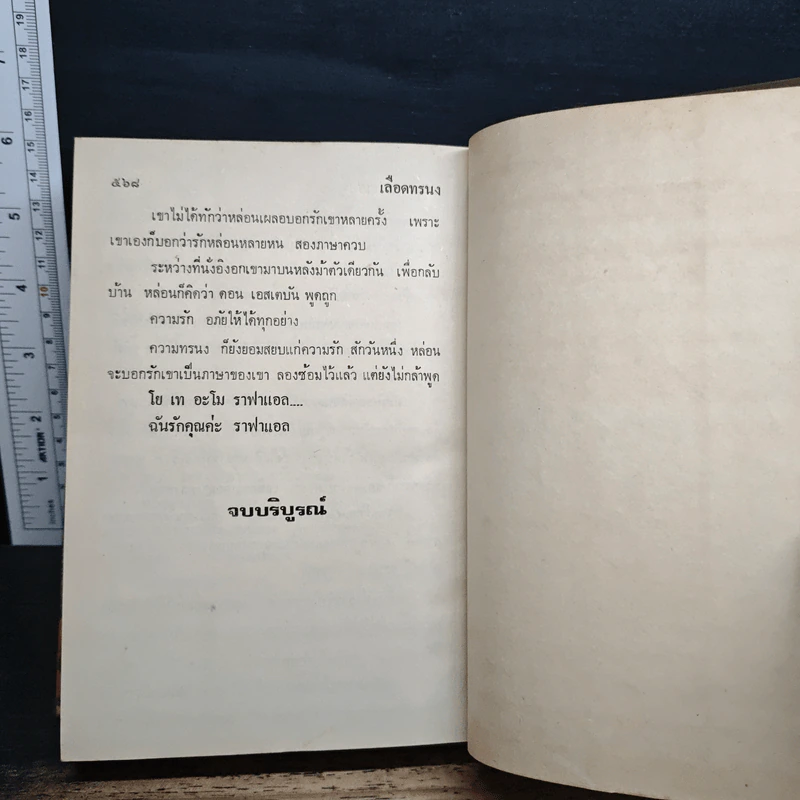 ๕๖๘ เลือดทรนง
เขาไม่ได้ทักว่าหล่อนเผลอบอกรักเขาหลายครั้ง เพราะ
เขาเองก็บอกว่ารักหล่อนหลายหน สองภาษาควบ
ระหว่างที่นั่งอิงอกเขามาบนหลังม้าตัวเดียวกัน เพื่อกลับ
บ้าน หล่อนก็คิดว่า ดอน เอสเตบัน พูดถูก
ความรัก อภัยให้ได้ทุกอย่าง
ความทรนง ก็ยังยอมสยบแก่ความรัก สักวันหนึ่ง หล่อน
จะบอกรักเขาเป็นภาษาของเขา ลองซ้อมไว้แล้ว แต่ยังไม่กล้าพูด
โย เท อะโม ราฟาแอล....
ฉันรักคุณค่ะ ราฟาแอล
จบบริบูรณ์
19
18
17
16
15
14
13
12
11
10
9
8
7
6
5
4
3
2
1
7
6
5
4
3
2
1
inches